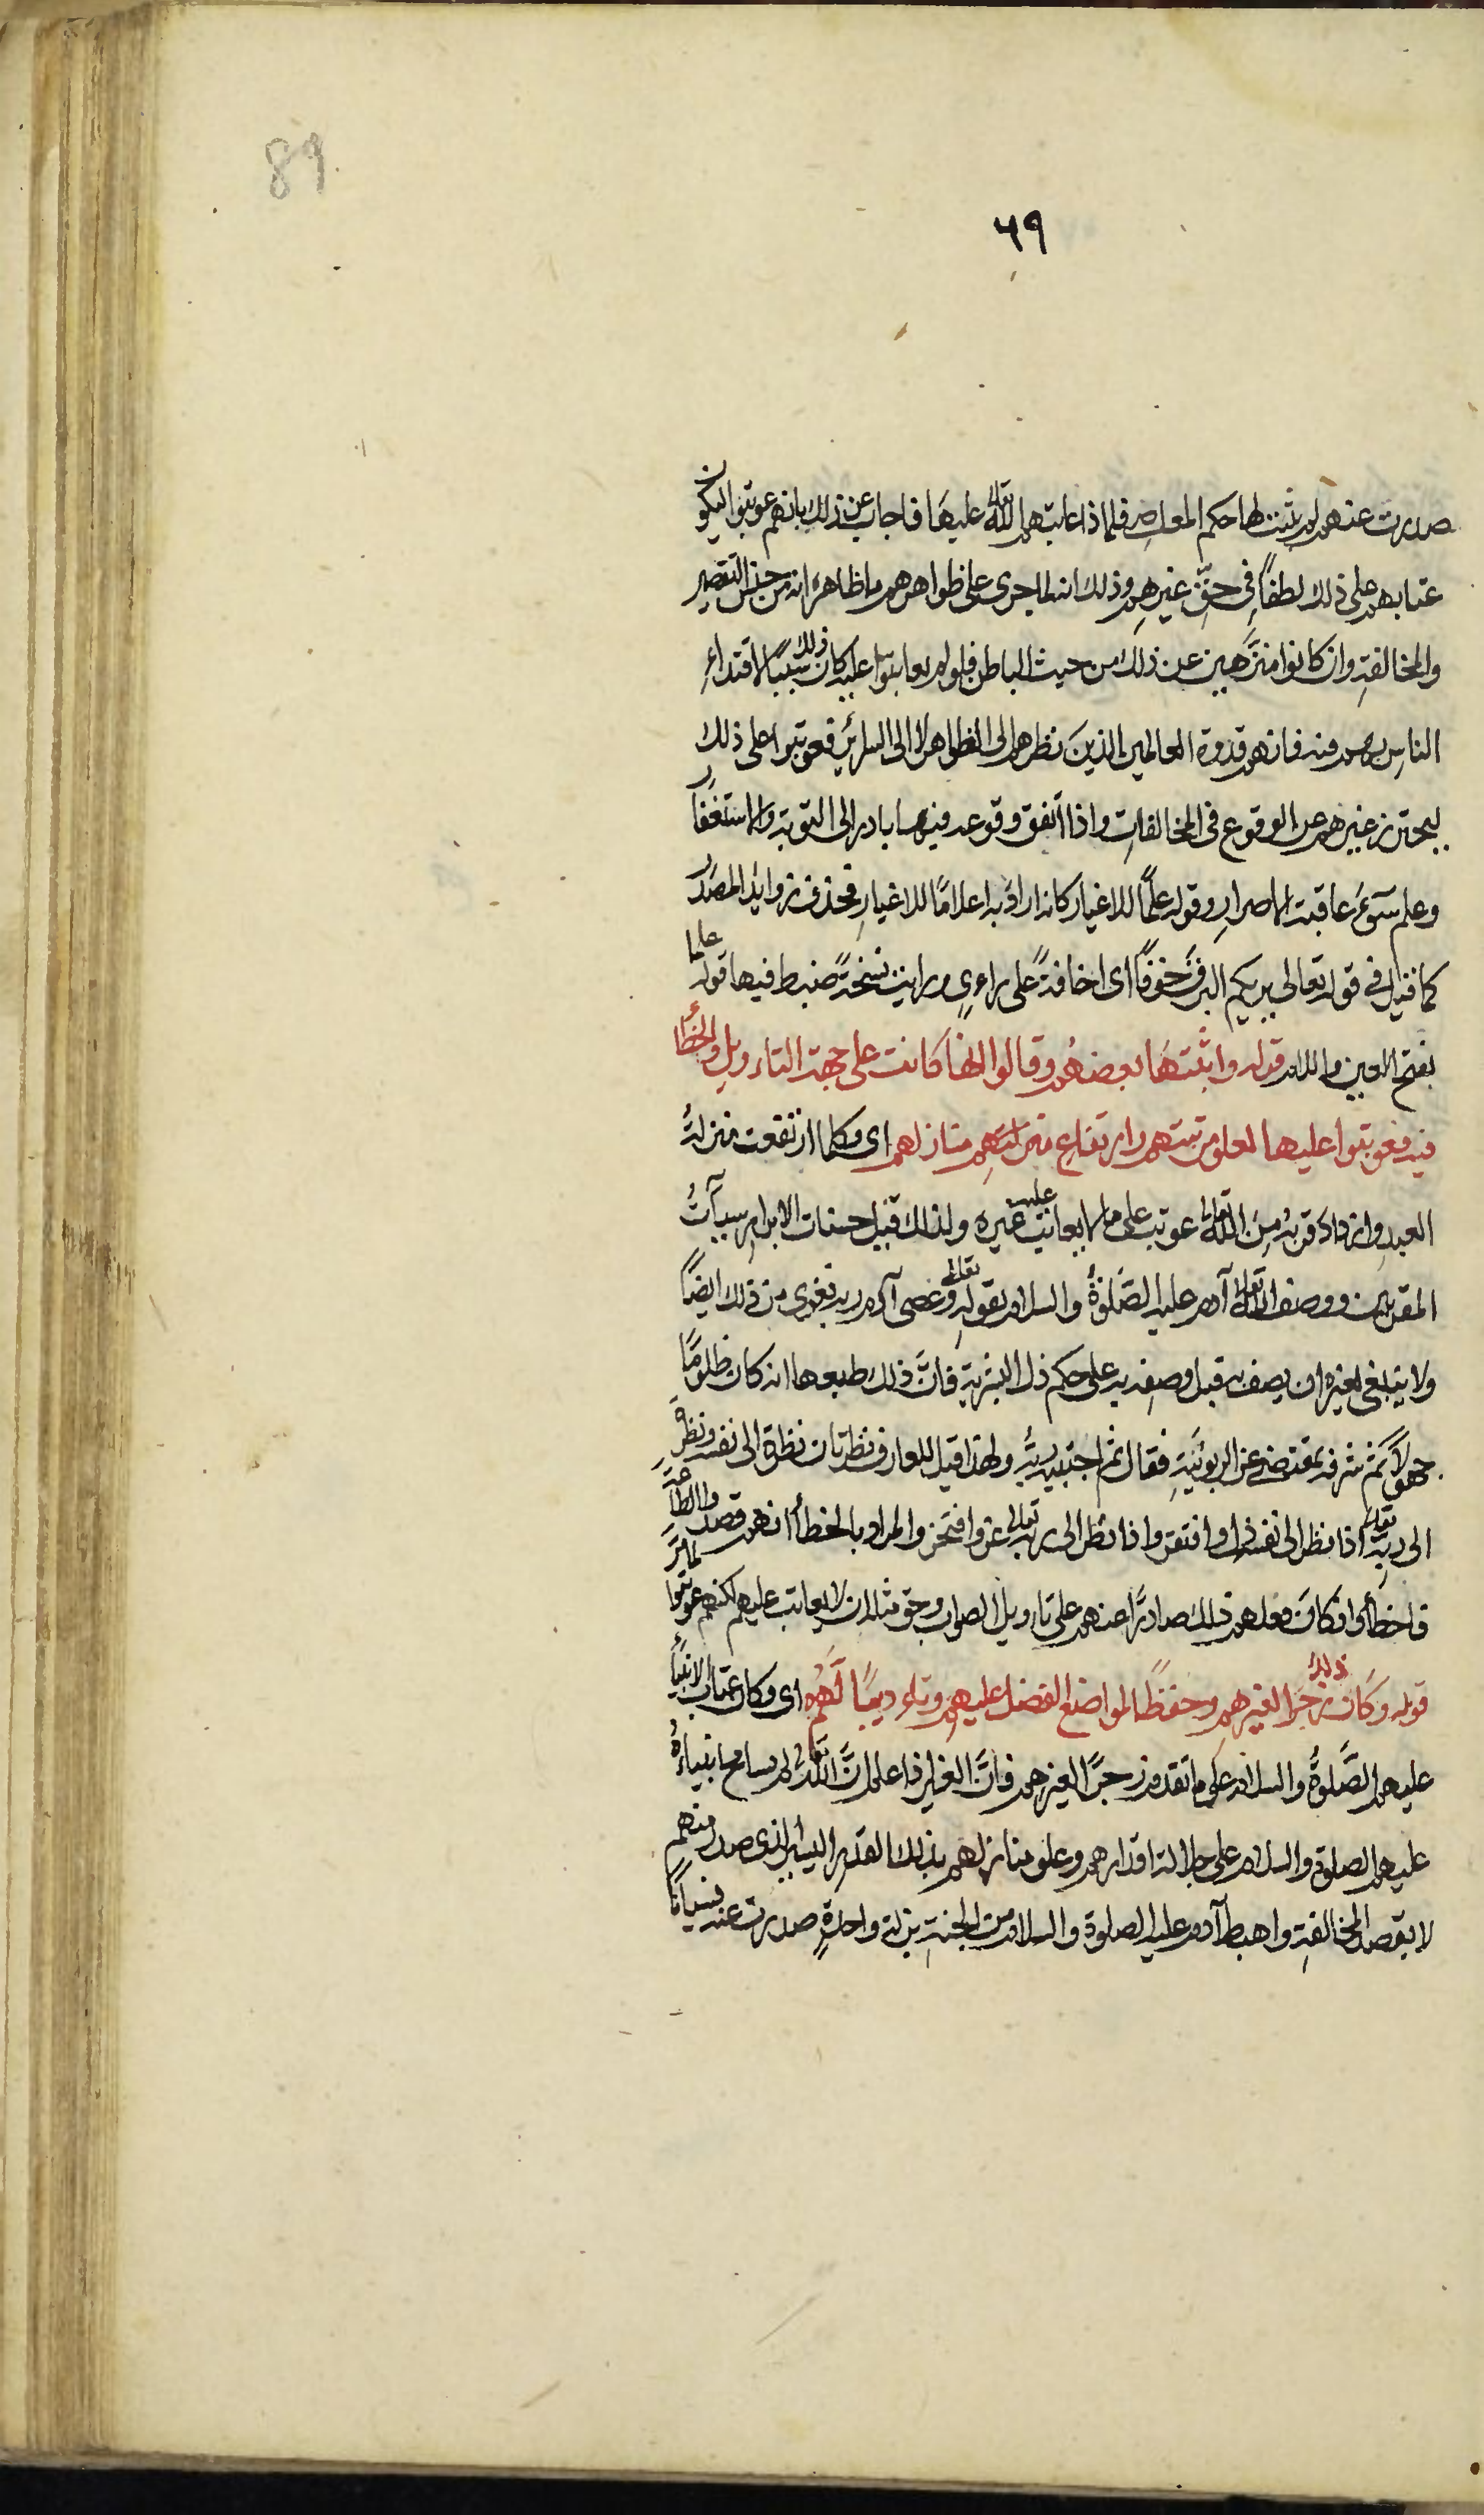 89
٥٩
صدرت عنهم لم يثبت لها حكم المعاصى فلماذا عاتبهم الله تعالى عليها فاجاب عن ذلك بانهم عوتبوا ليكون
عتابهم على ذلك لطفًا فى حقّ غيرهم وذلك انه لما جرى على ظواهرهم ما ظاهره انه من جنس التقصير
والمخالفةِ وان كانوا منزَّهين عن ذلك من حيث الباطن فلو لم يعاتبوا عليه كان ذلك سببًا لاقتداءِ
الناسِ بهم فيه فانهم قدوة العالمين الذينَ نظرهم الى الظواهر لا الى السرائر فعوتبوا على ذلك
ليحترز غيرهم عن الوقوع فى المخالفاتِ واذا اتفق وقوعه فيها بادر الى التوبة والاستغفار
وعلم سوءَ عاقبة الاصرارِ وقوله علمًا للاغيار كانه ارادَ به اعلامًا للاغيارِ فحذف زوايد المصدر
كما قيل فى قوله تعالى يريكم البرق خوفًا اى اخافةً على راءى ورايت نسخةً ضبط فيها قوله علما
بفتح العين واللام قوله واثبتهَا بعضهُم وقالوا انها كانت على جهة التاءويلِ والخطأ
فيه فعوتبوا عليها لعلو مرتبتهم وارتفاع منزلتِهِم منازلهم اى وكلما ارتفعت منزلةُ
العبدِ وازدادَ قربُه مِنَ الله تعالى عوتب على ما لا يعاتب عليه غيره ولذلك قيل حسنات الابرار سيآتُ
المقربين ووصف الله تعالى آدم عليه الصَّلوةُ والسلام بقولهِ تعالى وعصى آدم ربه فغوى من ذلك ايضًا
ولا ينبغى لغيره ان يصفه به قيل وصفه به على حكم ذل البشرية فانَّ ذلك طبعها انه كان ظلومًا
جهولًا ثم شرفه بمقتضى عز الربوبيَّةِ فقال ثم اجتبيه ربُّه ولهذا قيل للعارف نظرتان نظرة الى نفسه ونظرةٌ
الى ربِّه تعالى اذا نظر الى نفسه ذل وافتقر واذا نظر الى ربه تعالى عز وافتخر والمراد بالخطأ انهم قصدوا الطاعة
فاخطأوا فكانَ فعلهم ذلك صادرًا عنهم على تاويل الصواب وحق مثله ان لا يعاتب عليهم لكنهم عوتبوا لما مرَّ
قوله وكان ذلك زجرًا لغيرهم وحفظًا لمواضع الفضل عليهِم وتاءديبًا لَهُم اى وكان عتاب الانبياء
عليهم الصَّلوةُ والسلام على ما تقدم زجرًا لغيرهم فانَّ الغير اذا علم انَّ الله تعالى لم يسامح انبياءهُ
عليهم الصلوة والسلام على جلالة اقدارهم وعلو منازلهم بذلك القدر اليسير الذى صدر منهم
لا بقصد المخالفةِ واهبط آدم عليه الصلوة والسلام من الجنةِ بزلة واحدةٍ صدرت عنه نسيانًا